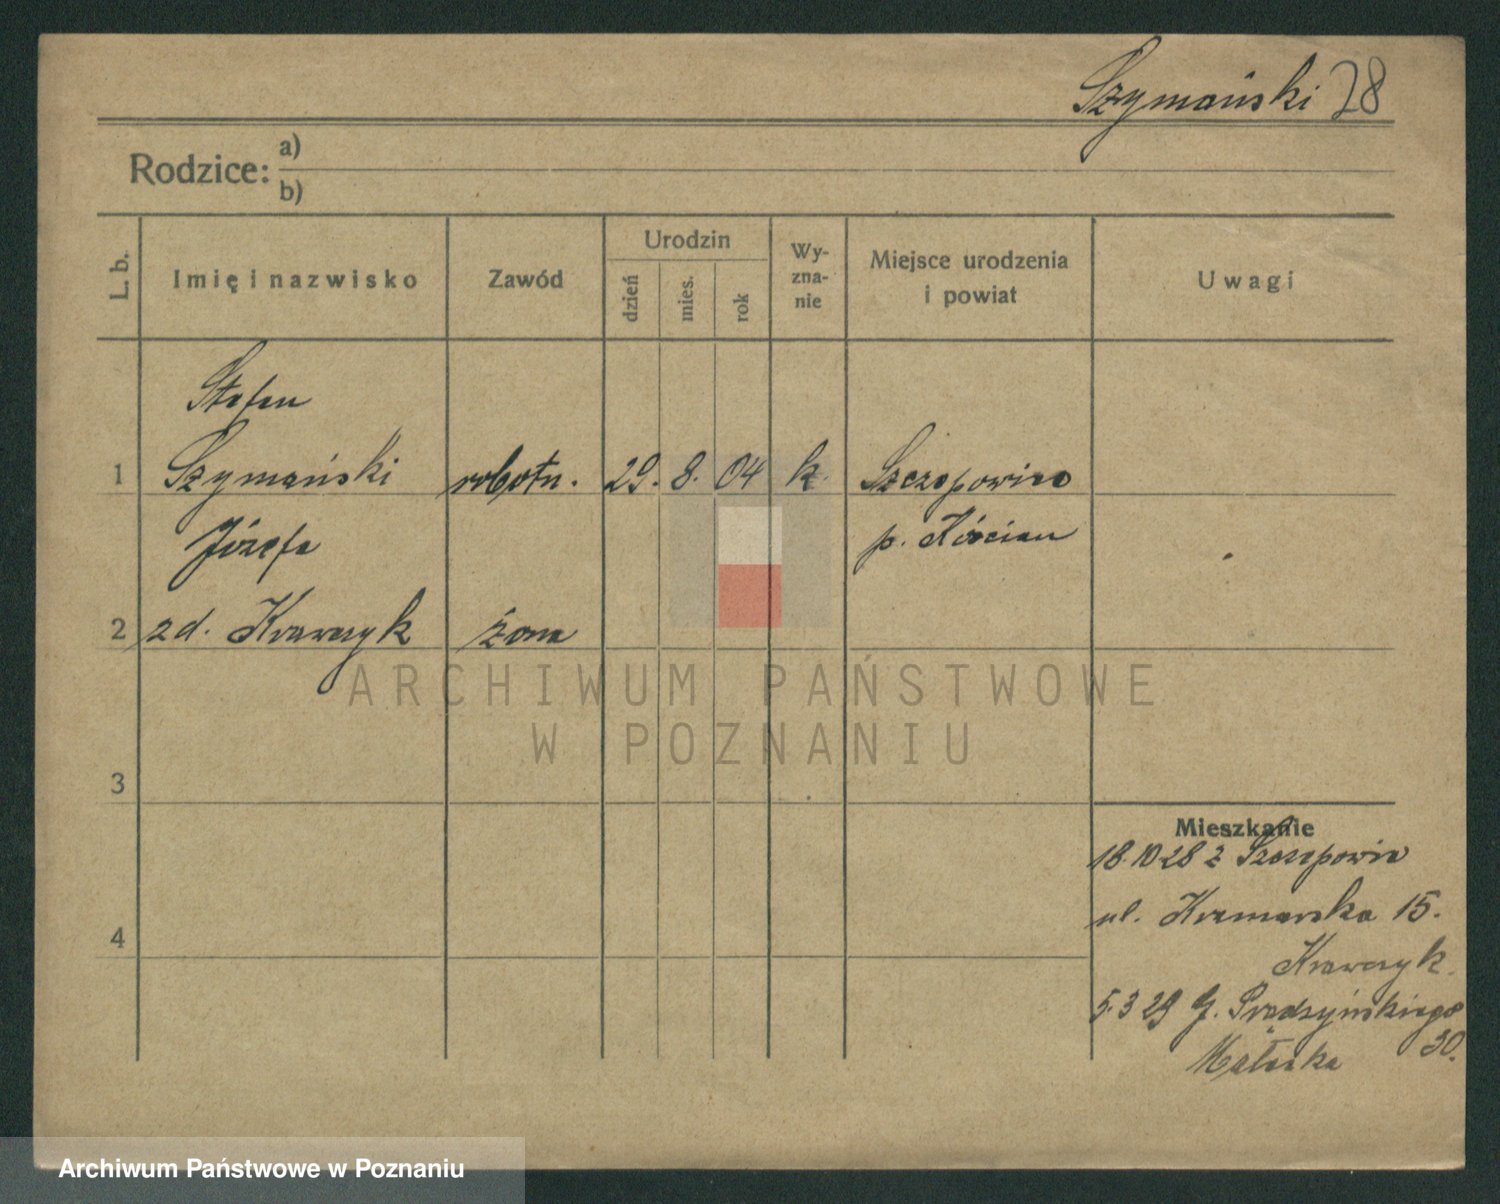 Szymański 28
Rodzice: a)
b)
L. b.
Imię i nazwisko
Zawód
Urodzin
dzień
mies.
rok
Wy-
zna-
nie
Miejsce urodzenia
i powiat
Uwagi
Stefan
1 Szymański robotn. 29. 8. 04 k. Szczepowice
Józefa p. Kościan
2 zd. Krawczyk żona
3
4
Mieszkanie
18.10 28 z Szczepowic
ul. 15.
Krawczyk
5.3 29 G. Prądzyńskiego
30.
ARCHIWUM PAŃSTWOWE
W POZNANIU
Archiwum Państwowe w Poznaniu